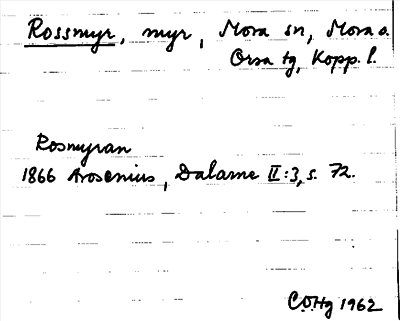 Rossmyr, myr, Mora sn, Mora o.
Orsa tg, Kopp. l.
Rosmyran
1866 Arosenius, Dalarne II:3, s. 72.
COHg 1962